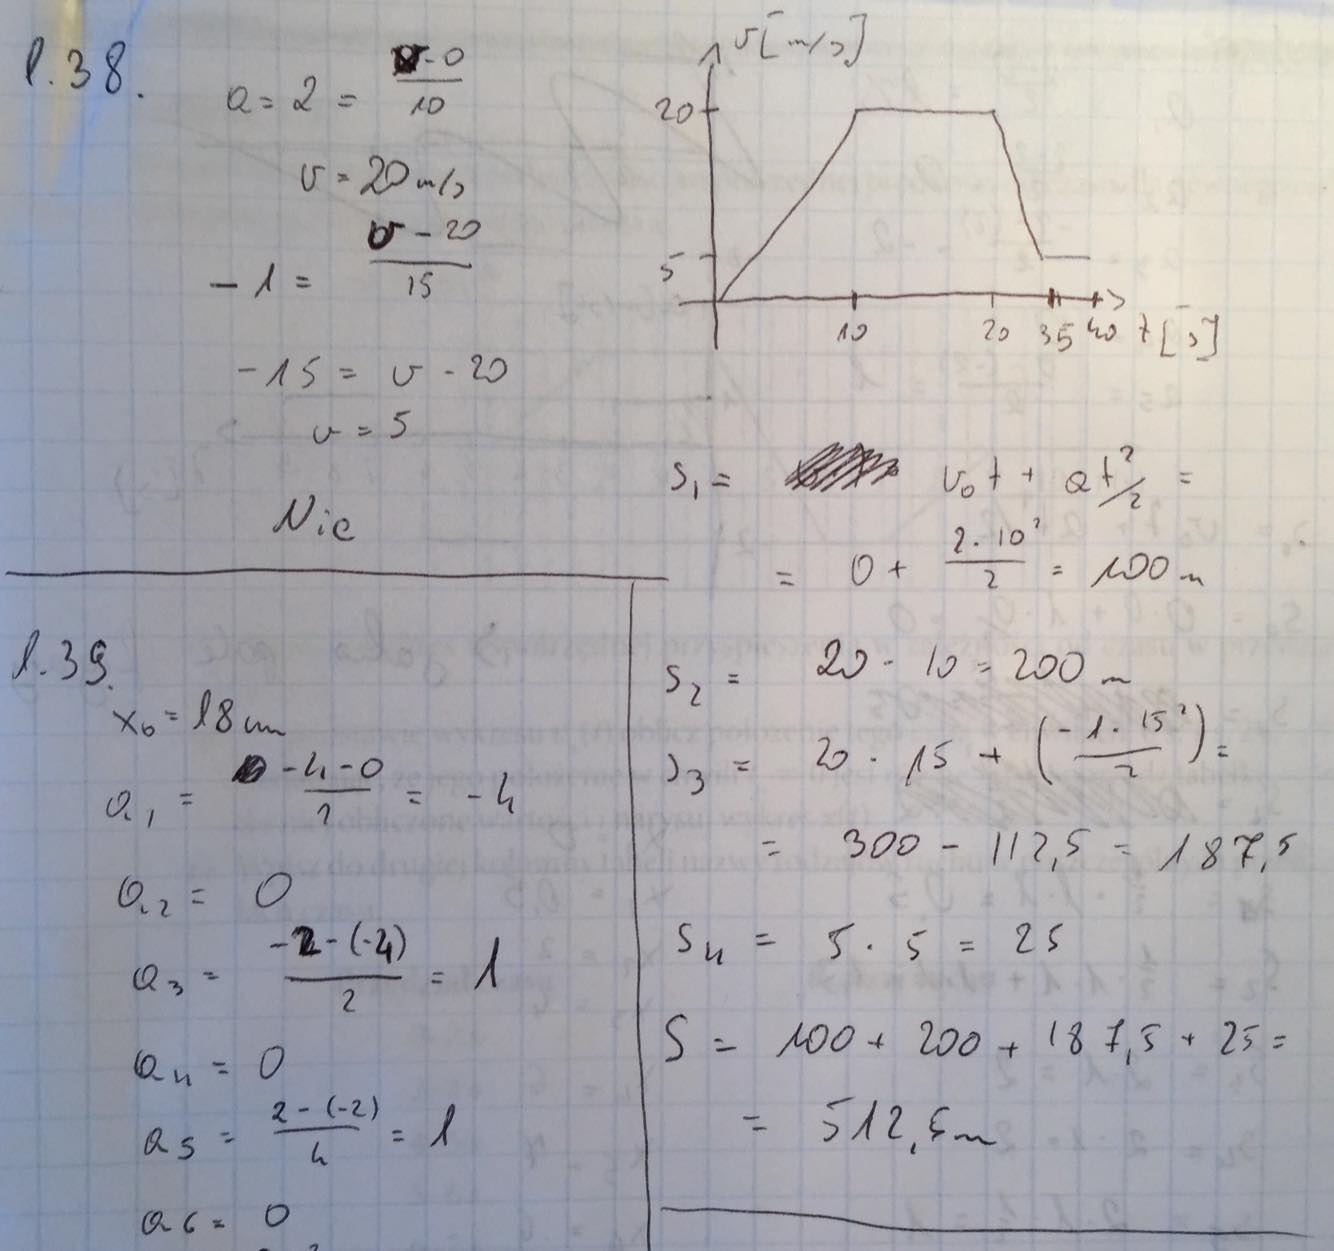 1.38.
a = 2 = v-0/10
v = 20 m/s
-1 = v-20/15
-15 = v - 20
v = 5
Nie
v[m/s]
20
5
10 20 35 40 t[s]
s₁ = v₀t + at²/2 =
= 0 + 2·10²/2 = 100 m
s₂ = 20 · 10 = 200 m
s₃ = 20 · 15 + (-1·15²/2) =
= 300 - 112,5 = 187,5
s₄ = 5 · 5 = 25
S = 100 + 200 + 187,5 + 25 =
= 512,5 m
1.39.
x₀ = 18 m
a₁ = -4-0/1 = -4
a₂ = 0
a₃ = -2-(-4)/2 = 1
a₄ = 0
a₅ = 2-(-2)/4 = 1
a₆ = 0